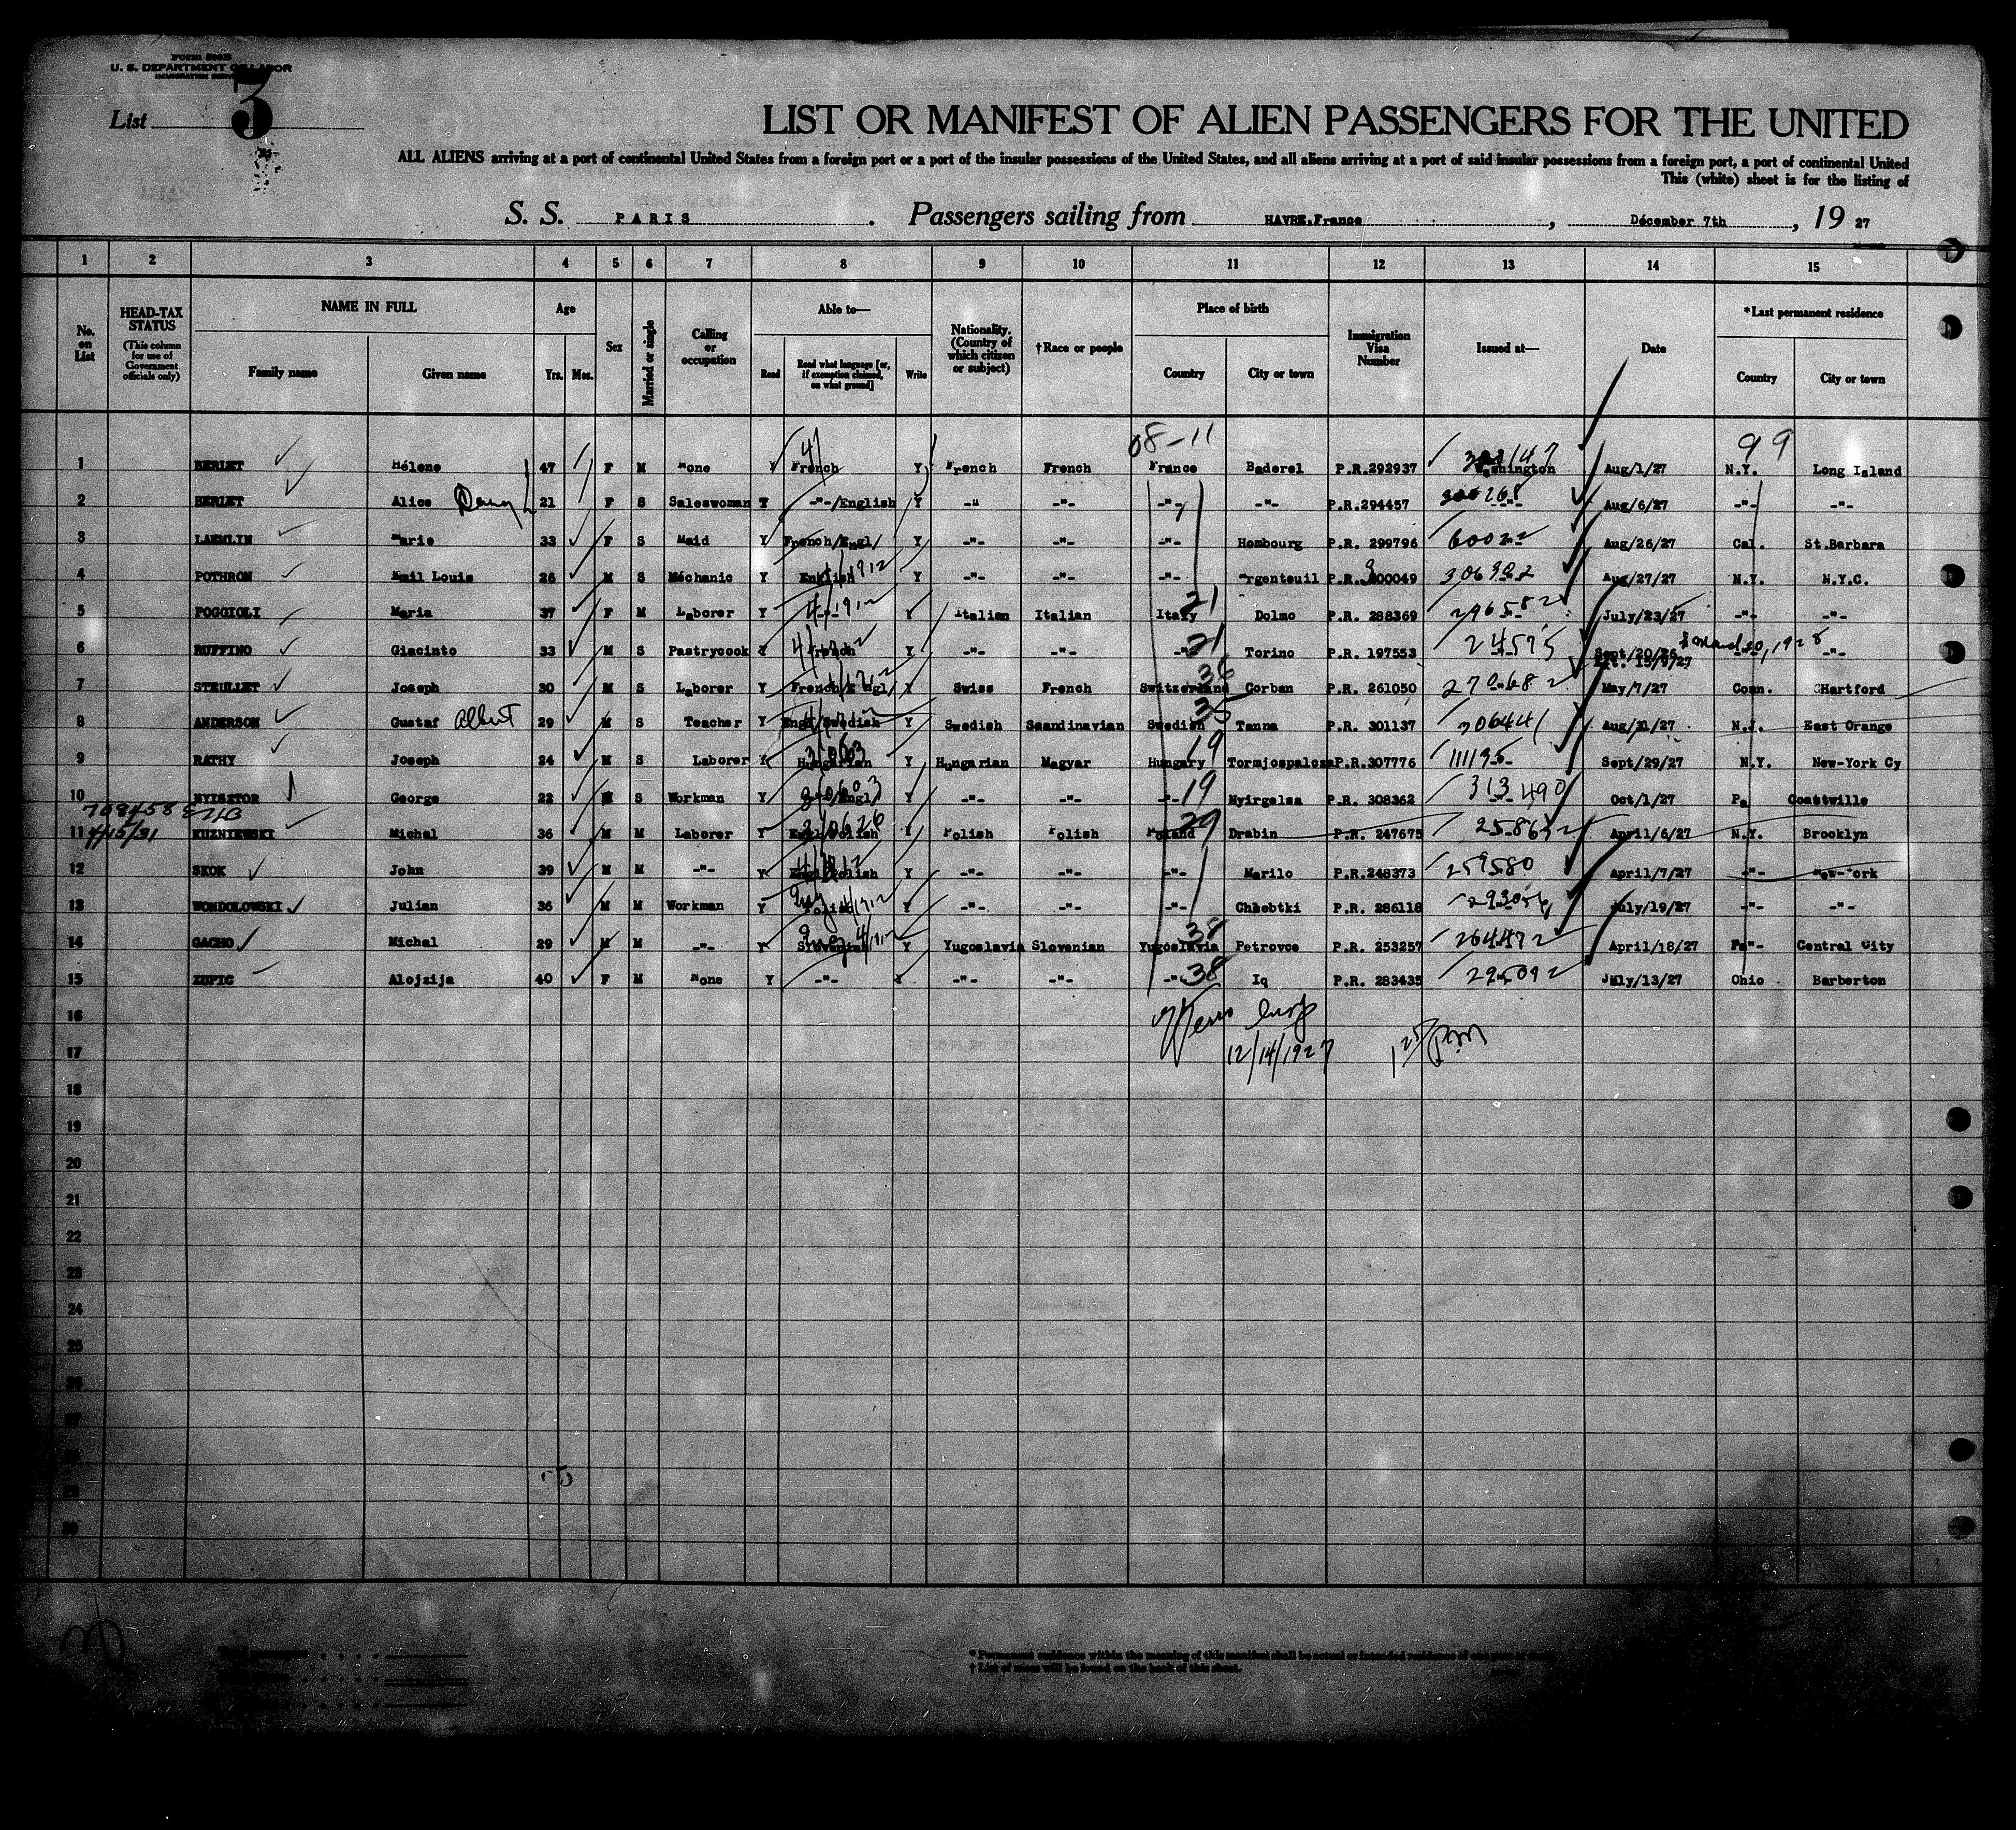 U. S. DEPARTMENT OF LABOR
List 3
LIST OR MANIFEST OF ALIEN PASSENGERS FOR THE UNITED
ALL ALIENS arriving at a port of continental United States from a foreign port or a port of the insular possessions of the United States, and all aliens arriving at a port of said insular possessions from a foreign port, a port of continental United
This (white) sheet is for the listing of
S. S. PARIS. Passengers sailing from HAVRE.France, Décember 7th, 19 27
1 2 3 4 5 6 7 8 9 10 11 12 13 14 15
No. on List HEAD-TAX STATUS (This column for use of Government officials only) NAME IN FULL Family name Given name Age Yrs. Mos. Sex Married or single Calling or occupation Able to— Read Read what language [or, if exemption claimed, on what ground] Write Nationality. (Country of which citizen or subject) †Race or people Place of birth Country City or town Immigration Visa Number Issued at— Date *Last permanent residence Country City or town
08-11 99
1 BERLET Hélene 47 F M None Y French Y French French France Baderel P.R.292937 Washington Aug/1/27 N.Y. Long Island
2 BERLET Alice 21 F S Saleswoman Y -"-/English Y -" -"- -"- -"- P.R.294457 -"- Aug/6/27 -"- -"-
3 LAEMLIN Marie 33 F S Maid Y French/Engl/ Y -"- -"- -"- Hombourg P.R. 299796 Aug/26/27 Cal. St.Barbara
4 POTHRON Emil Louis 26 M S Méchanic Y English Y -"- -"- -"- Argenteuil P.R. 300049 Aug/27/27 N.Y. N.Y.C.
5 POGGIOLI Maria 37 F M Laborer Y -"- Y Italian Italian Italy 21 Dolmo P.R. 288369 July/23/27 -"- -"-
6 RUFFINO Giacinto 33 M S Pastrycook Y French Y -"- -"- -"- 21 Torino P.R. 197553 24575 Sept/20/26 -"- -"-
Ext. 15/9/27
7 STEULLET Joseph 30 M S Laborer Y French/Engl/ Y Swiss French Switzerland 36 Corban P.R. 261050 May/7/27 Conn. Hartford
8 ANDERSON Gustaf Albert 29 M S Teacher Y Engl/Swedish Y Swedish Scandinavian Swedish 35 Tanna P.R. 301137 306441 Aug/31/27 N.J. East Orange
9 RATHY Joseph 24 M S Laborer Y Hungarian Y Hungarian Magyar Hungary 19 Tormjospalcza P.R.307776 Sept/29/27 N.Y. New-York Cy
10 NYISZTOR George 22 M S Workman Y -"-/Engl/ Y -"- -"- -"- 19 Nyirgelsa P.R. 308362 313490 Oct/1/27 Pa Coastville
4/15/31
11 KUZNIEWSKI Michal 36 M M Laborer Y Engl/Polish Y Polish Polish Poland 29 Drabin P.R. 247675 April/6/27 N.Y. Brooklyn
12 SKOK John 39 M M -"- Y Engl/Polish Y -"- -"- -"- Merilo P.R.248373 259580 April/7/27 -"- New-York
13 WONDOLOWSKI Julian 36 M M Workman Y Polish Y -"- -"- -"- Chaebtki P.R. 286118 July/19/27 -"- -"-
14 GACHO Michal 29 M M -"- Y Slovenian Y Yugoslavia Slovenian Yugoslavia 38 Petrovce P.R. 253257 April/18/27 Pa"- Central City
15 ZUPIC Alojzija 40 F M None Y -"- Y -"- -"- -"- 38 Iq P.R. 283435 July/13/27 Ohio Barberton
16
12/14/1927
17
18
19
20
21
22
23
24
25
26
27
28
29
30
* Permanent residence within the meaning of this manifest shall be actual or intended residence of one year or more.
† List of races will be found on the back of this sheet.